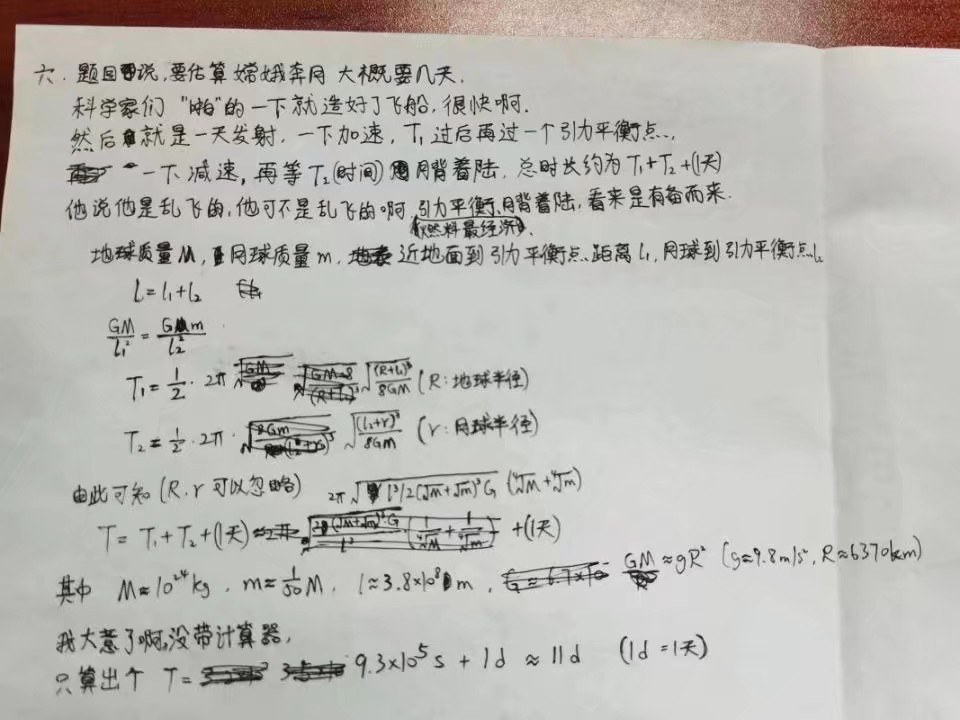 六. 题目说,要估算嫦娥奔月 大概要几天.
科学家们 "啪"的一下就造好了飞船,很快啊.
然后就是一天发射,一下加速,T₁过后再过一个引力平衡点.,
一下减速,再等T₂(时间)月背着陆,总时长约为T₁+T₂+(1天)
他说他是乱飞的,他可不是乱飞的啊,引力平衡,月背着陆,看来是有备而来.
(燃料最经济).
地球质量M,月球质量m,近地面到引力平衡点距离l₁,月球到引力平衡点l₂
L=l₁+l₂
GM/l₁²=Gm/l₂²
T₁=1/2·2π√((R+l₁)³/8GM) (R:地球半径)
T₂=1/2·2π·√((l₂+r)³/8Gm) (r:月球半径)
由此可知(R.r可以忽略)
T=T₁+T₂+(1天)
+(1天)
其中 M≈10²⁴kg, m≈1/50M, l≈3.8×10⁸m, GM≈gR² (g≈9.8m/s², R≈6370km)
我大意了啊,没带计算器,
只算出个 T= 9.3×10⁵s+1d≈11d (1d=1天)